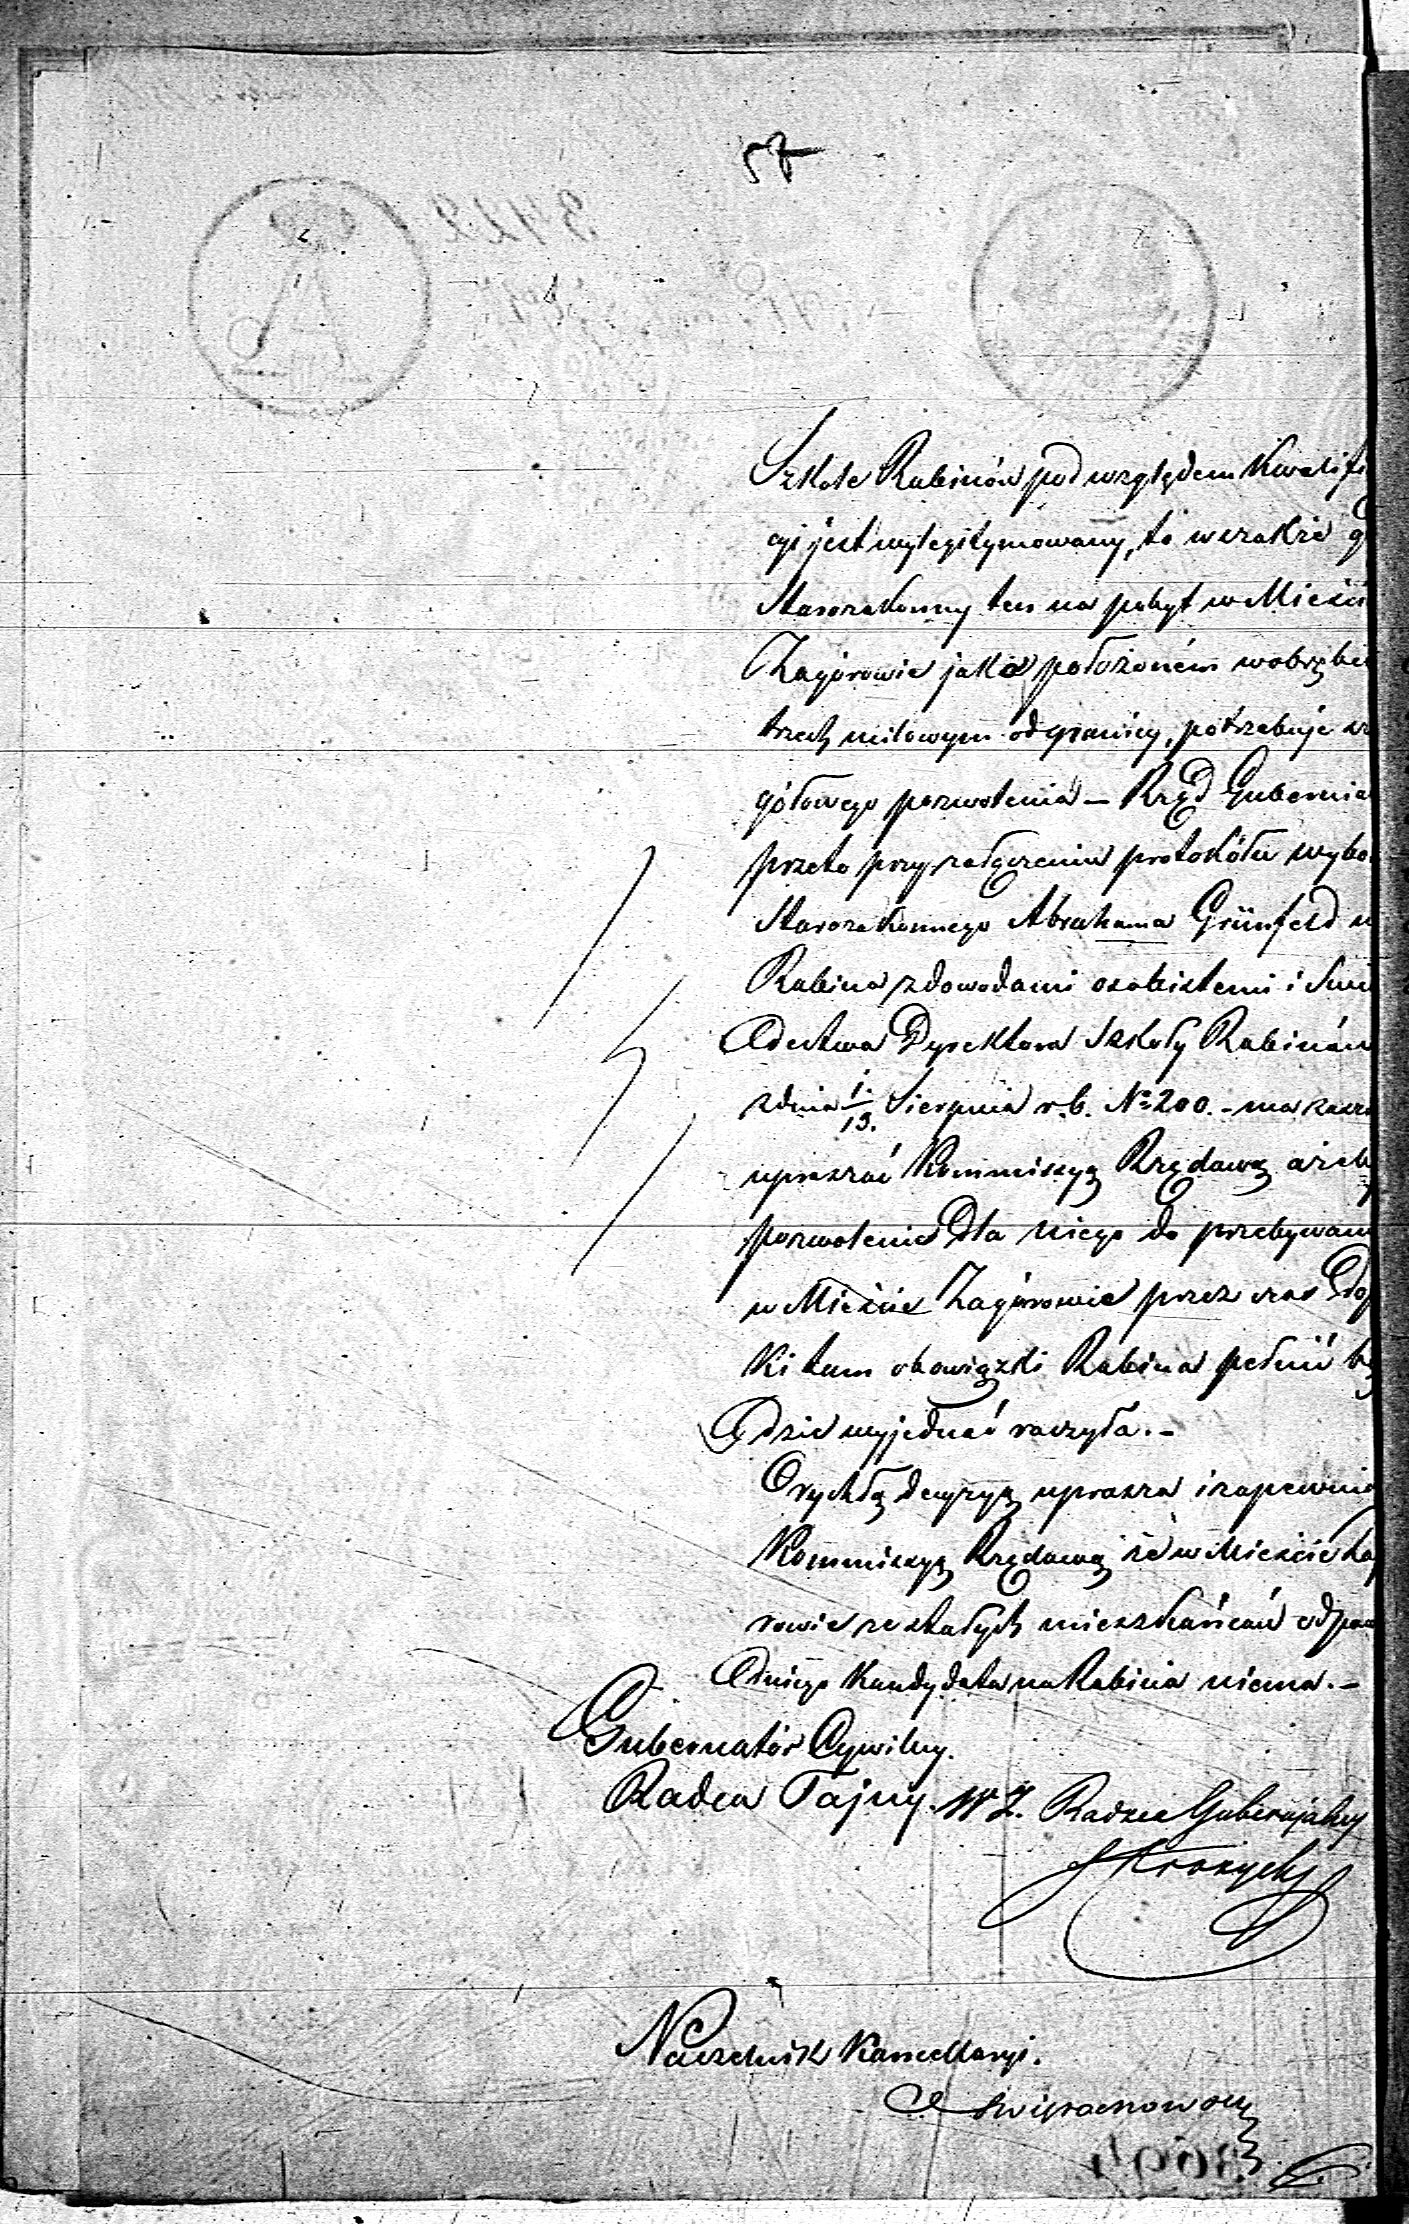 57
Szkole Rabinów pod względem Kwalifi
cyi jest wylegitymowany, to wszakże g
Starozakonny ten na pobyt w Mieści
Zagórowie jako położoném w obrębie
trech milowym od granicy, potrzebuje sz
gółowego pozwolenia – Rząd Gubernia
przeto przy załączeniu protokółu wybo
Starozakonnego Abrahama Grünfeld n
Rabina z dowodami osobistemi i Świ
adectwa Dyrektora Szkoły Rabinów
z dnia 1/13. Sierpnia r.b. № 200. – ma zasz
upraszać Kommissyą Rządową ażeb
pozwolenie Dla niego do przebywani
w Mieście Zagórowie przez czas Dop
ki tam obowiązki Rabina pełnić bę
dzie wyjednać raczyła. –
O rychłą decyzyą uprasza i zapewnia
Kommissyą Rządową że w Mieście Zag
rowie ze stałych mieszkańców odpow
dniego Kandydata na Rabina niema. –
Gubernator Cywilny.
Radca Tajny. W Z. Radzca Gubernjalny
Naczelnik Kancellaryi.
3694